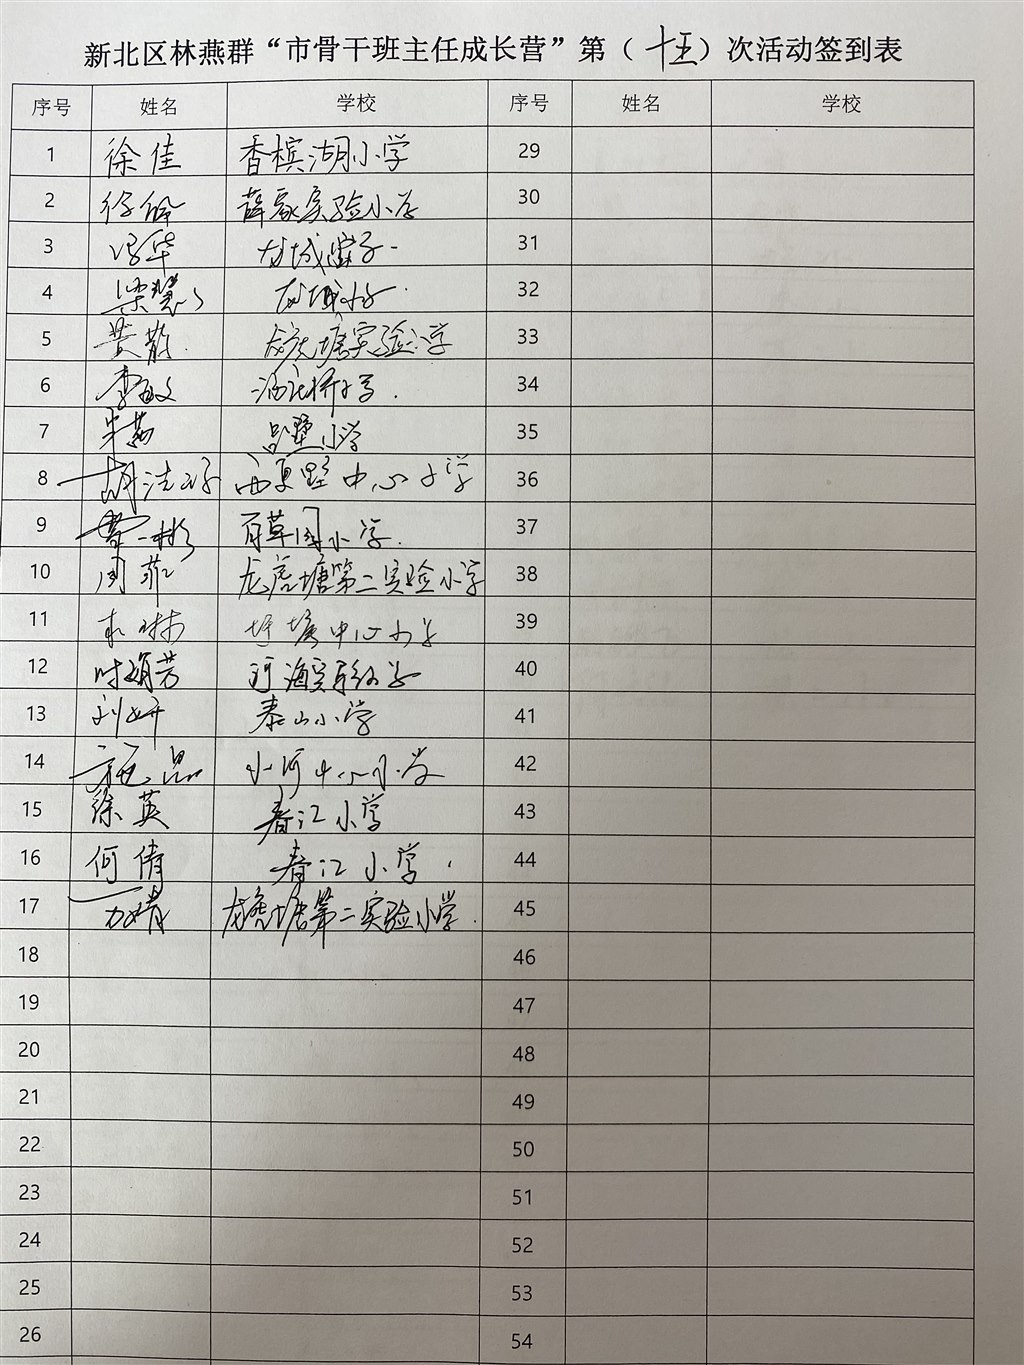 新北区林燕群“市骨干班主任成长营”第（十五）次活动签到表
序号 姓名 学校 序号 姓名 学校
1 徐佳 香槟湖小学 29
2 薛家实验小学 30
3 冯华 龙城 31
4 梁慧 龙城小学 32
5 龙虎塘实验小学 33
6 李敏 小学 34
7 朱茜 吕墅小学 35
8 胡洁 西夏墅中心小学 36
9 曹一彬 百草园小学 37
10 周菲 龙虎塘第二实验小学 38
11 圩塘中心小学 39
12 时娟芳 河海实验小学 40
13 刘妍 泰山小学 41
14 小河中心小学 42
15 徐英 春江小学 43
16 何倩 春江小学 44
17 龙虎塘第二实验小学 45
18 46
19 47
20 48
21 49
22 50
23 51
24 52
25 53
26 54